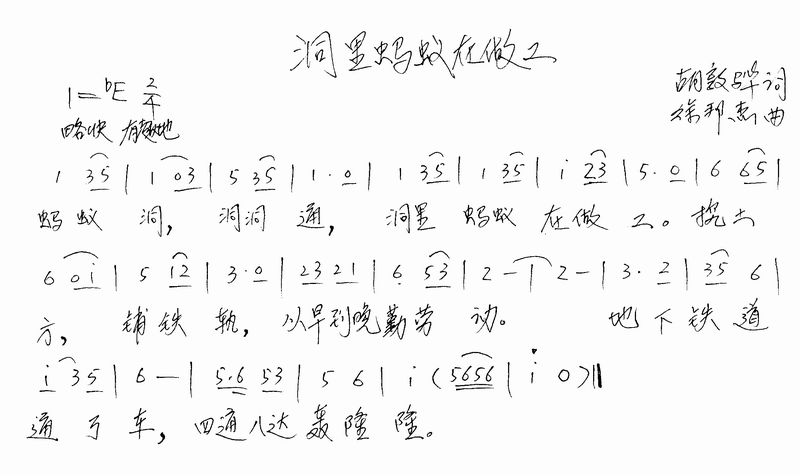 洞里蚂蚁在做工
1=♭E 2/4
略快 有趣地
胡敦骅词
徐邦杰曲
1 35 | 1 03 | 5 35 | 1·0 | 1 35 | 1 35 | i 23 | 5·0 | 6 65 |
蚂蚁 洞, 洞洞 通, 洞里 蚂蚁 在做 工。挖土
6 0i | 5 12 | 3·0 | 23 21 | 6 53 | 2 - | 2 - | 3·2 | 35 6 |
方, 铺铁 轨, 以早到晚勤劳 动。 地下铁道
i 35 | 6 — | 5·6 53 | 5 6 | i (5656 | i 0) ||
通了车, 四通八达轰隆隆。